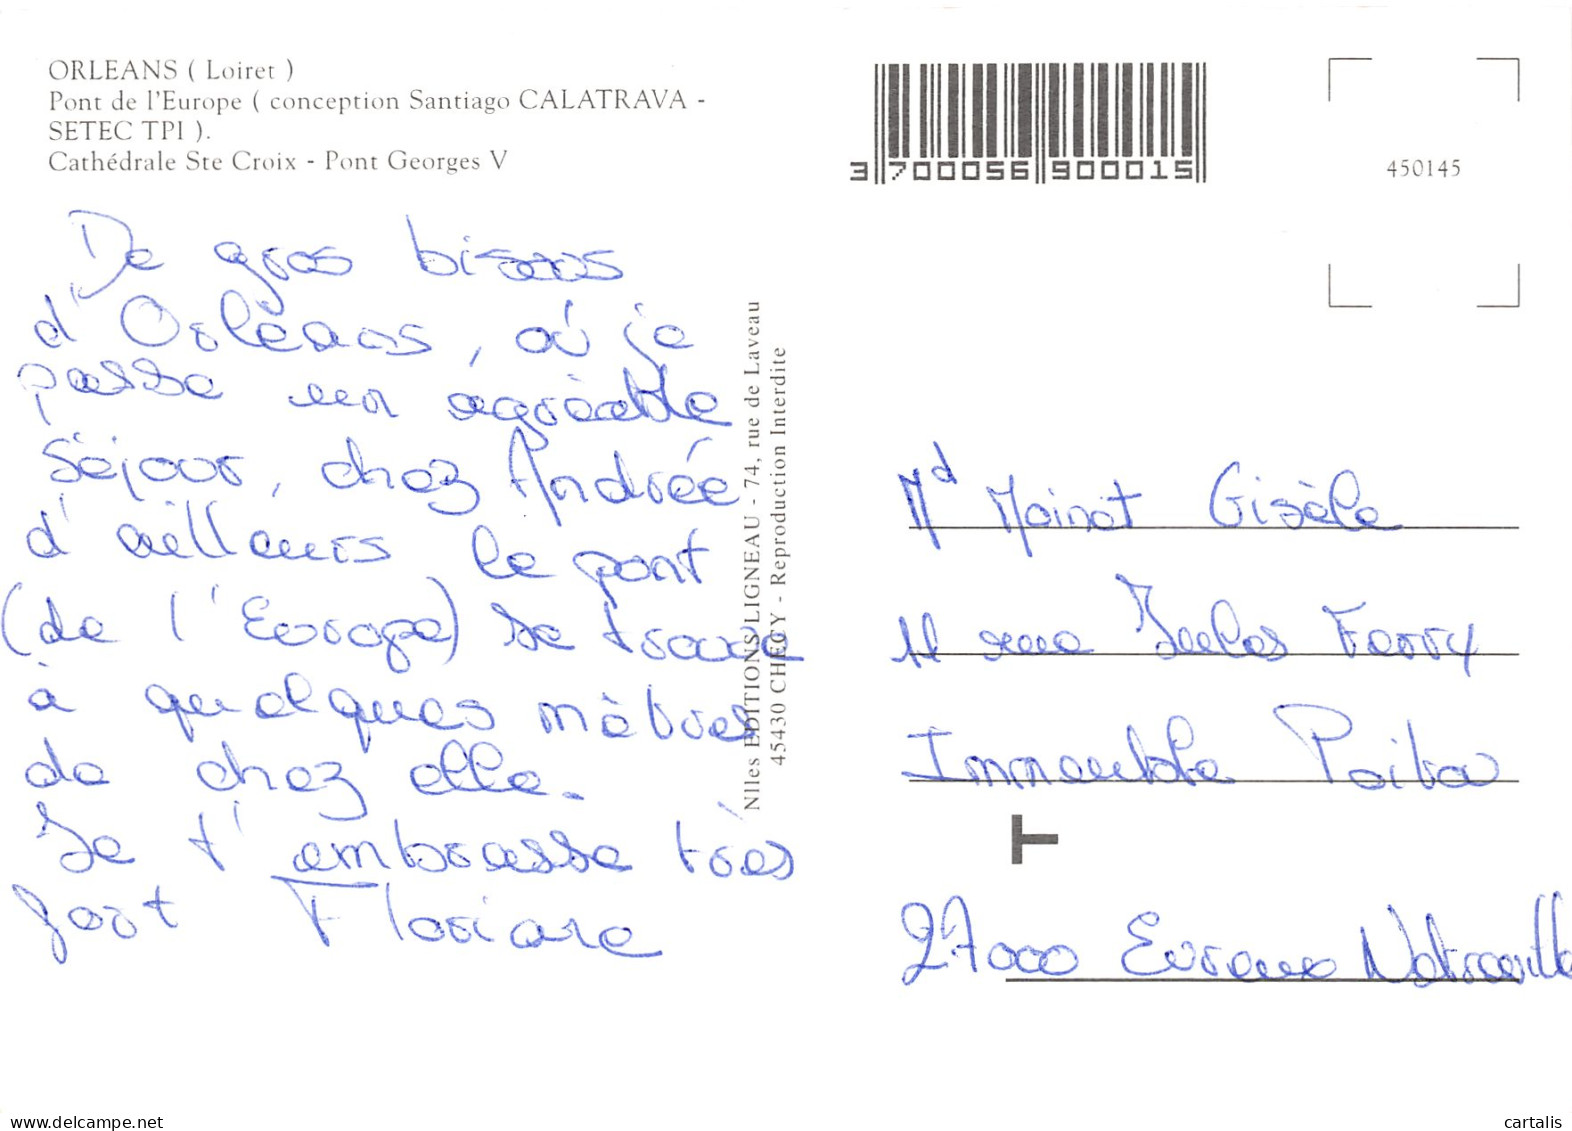 ORLEANS ( Loiret )
Pont de l'Europe ( conception Santiago CALATRAVA -
SETEC TPI ).
Cathédrale Ste Croix - Pont Georges V
3 700056 900015
450145
De gros bisous
d'Orléans, où je
passe un agréable
séjour, chez Andrée
d'ailleurs le pont
(de l'Europe) se trouve
à quelques mètres
de chez elle.
Je t'embrasse très
fort Floriane
Nlles EDITIONS LIGNEAU - 74, rue de Laveau
45430 CHECY - Reproduction Interdite
Md Moinot Gisèle
11 rue Jules Ferry
Immeuble Poitou
T
27000 Evreux Netreville
delcampe.net
cartalis